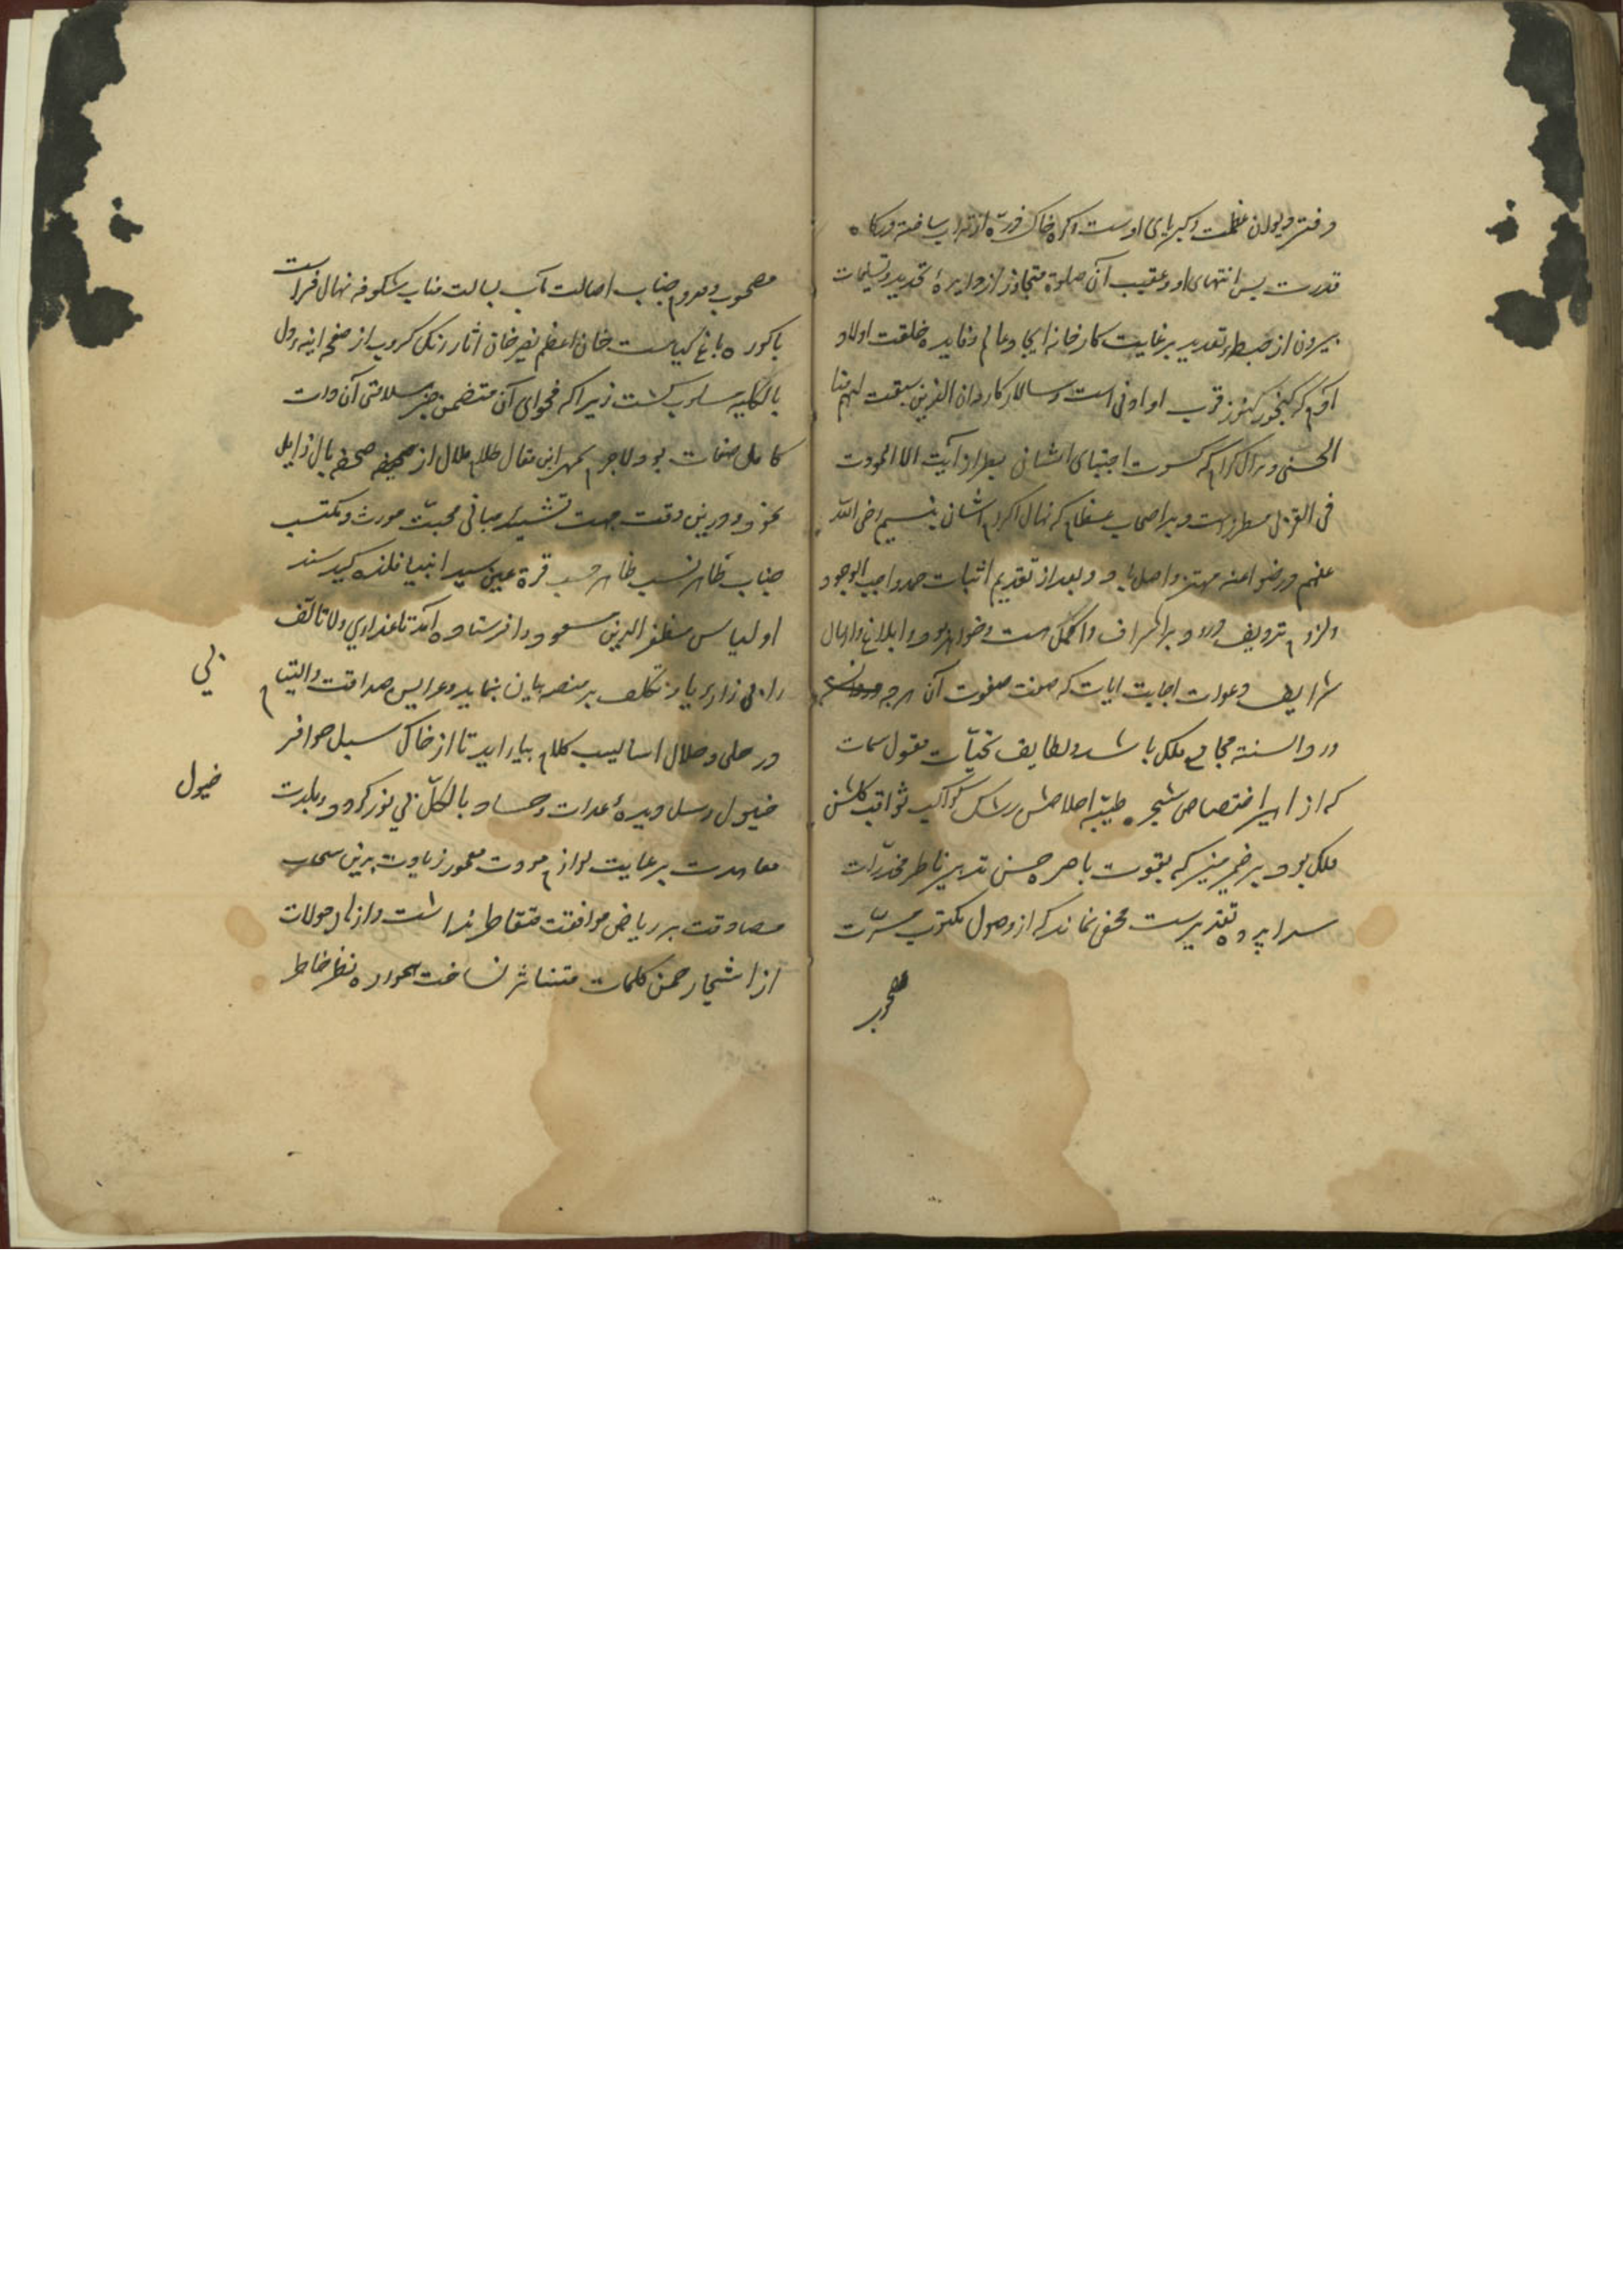 دفتر دیوان عظمت و کبریای اوست و کره خاک ذره از تراب ساخته درکاه
قدرت بی انتهای او و عقیب آن صلوة متجاوز از دایره تحدید و تسلیمات
بیرون از ضبط و تعدید بر غایت کارخانه ایجاد عالم و فایده خلقت اولاد
آدم که کنجور کنوز قرب او ادنی است و سالار کاروان الذین سبقت لهم منا
الحسنی و بر آل کرام که کسوت اجتبای ایشان بطراز آیت الا المودت
فی القربی مطرز است و بر اصحاب عظام که نهال اکرام ایشان بنسیم رضی الله
عنهم و رضوا عنه مهتز واصل باد و بعد از تقدیم اثبات حمد واجب الوجود
و لزوم تردیف درود بر اشراف و اکمل هست و خواهد بود و ابلاغ و ارسال
شرایف دعوات اجابت ایات که صفت صفوت آن هرچه
ورد السنه مجامع ملک باشد و لطایف تحیات مقبول سمات
که از اثر اختصاص شجره طیبه اخلاصش رشک کواکب ثواقب کلشن
ملک بود بر ضمیر منیر که بقوت باصره حسن تدبیر ناظر مخدرات
سراپرده تقدیرست مخفی نماند که از وصول مکتوب مسرت
مصحوب
مصحوب و قدوم جناب اصالت مآب بسالت مناب شکوفه نهال فراست
باکوره باغ کیاست خان اعظم نصیر خان اثار زنک کروب از صفحه اینه دل
بالکلیه مسلوب کشت زیرا که فحوای آن متضمن خبر سلامتی آن ذات
کامل صفات بود لاجرم بمهر این مقال ظلام ملال از صحیفه صحفه بال زایل
نمود و درین وقت جهت تشیید مبانی محبت موروث و مکتسب
جناب طاهر نسب ظاهر حسب قرة عین سید انبیا فلذه کبد سند
اولیا مظفر الدین مسعود را فرستاده آمد تا عذاری ولا تالف
را بی زاید یاره تکلف بر منصه بیان بنماید و عرایس صداقت و التیام
بی
در حلی و حلال اسالیب کلام بیاراید تا از خاک سبل حوافر
خیول رسل دیده عدات و حساد بالکل بی نور کردد و بلدت
خیول
معاهدت برعایت لوازم مودت معمور زیادت برین سحاب
مصادقت بر ریاض موافقت متقاطر نداشت و ازهار حولات
از اشجار چمن کلمات متناثر نساخت همواره نظر خاطر